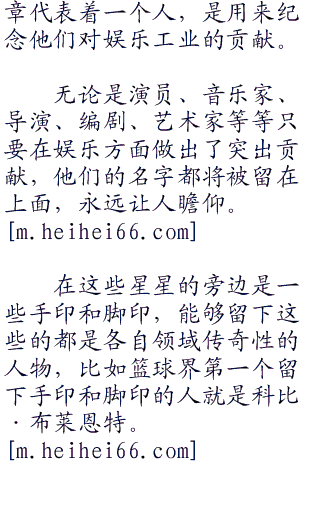 章代表着一个人，是用来纪
念他们对娱乐工业的贡献。
无论是演员、音乐家、
导演、编剧、艺术家等等只
要在娱乐方面做出了突出贡
献，他们的名字都将被留在
上面，永远让人瞻仰。
[m.heihei66.com]
在这些星星的旁边是一
些手印和脚印，能够留下这
些的都是各自领域传奇性的
人物，比如篮球界第一个留
下手印和脚印的人就是科比
·布莱恩特。
[m.heihei66.com]